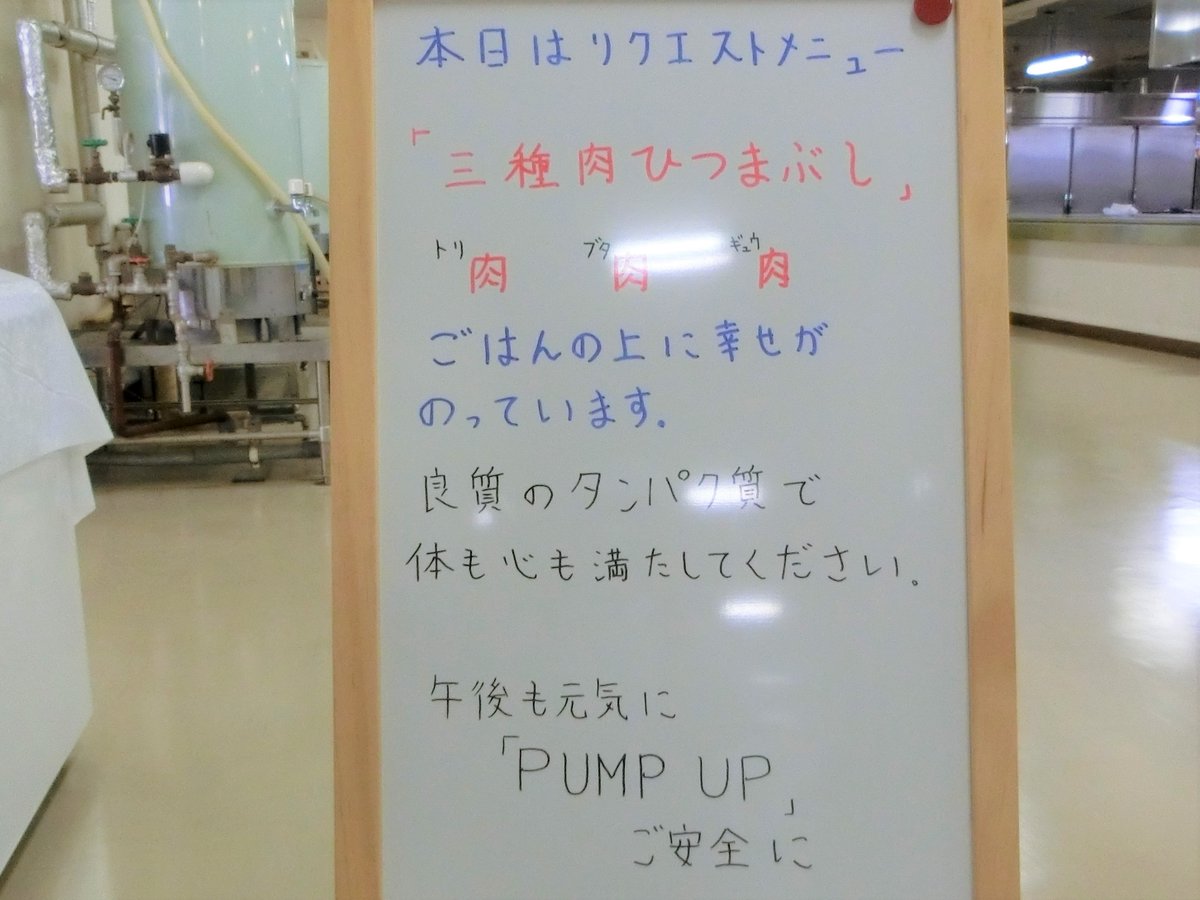 本日はリクエストメニュー
「三種肉ひつまぶし」
トリ肉 ブタ肉 ギュウ肉
ごはんの上に幸せが
のっています。
良質のタンパク質で
体も心も満たしてください。
午後も元気に
「PUMP UP」
ご安全に